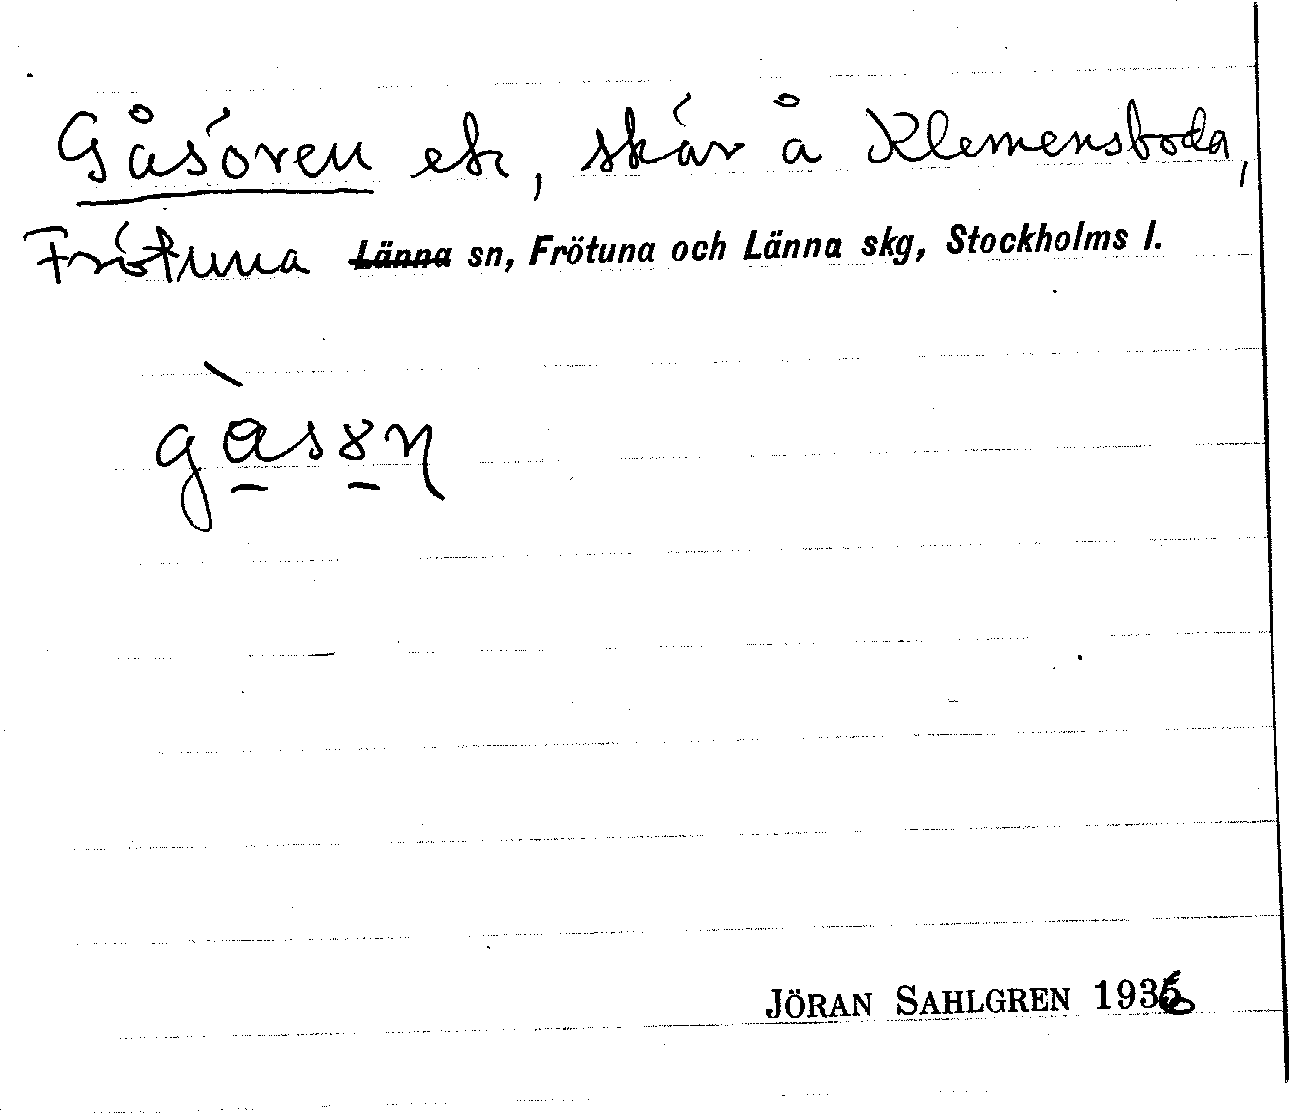 Gåsören ek, skär å Klemensboda,
Frötuna Länna sn, Frötuna och Länna skg, Stockholms l.
JÖRAN SAHLGREN 1936